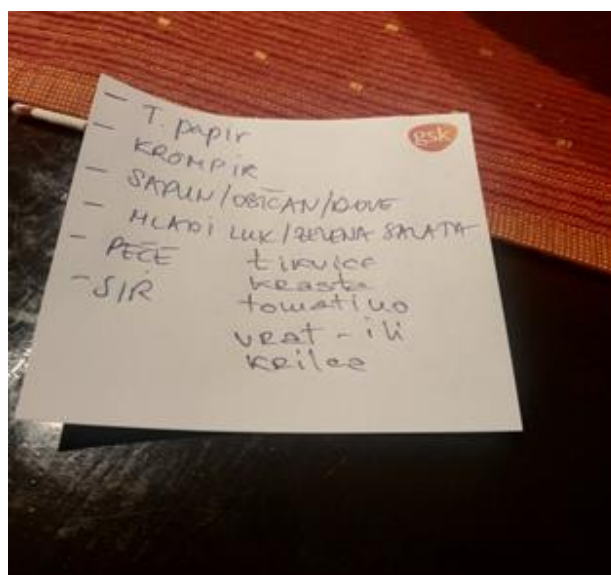 gsk
- T. papir
- KROMPIR
- SAPUN/OBIČAN/DOVE
- MLADI LUK/ZELENA SALATA
- PEČE
- SIR
tikvice
krasta
tomatino
vrat - ili
krilca